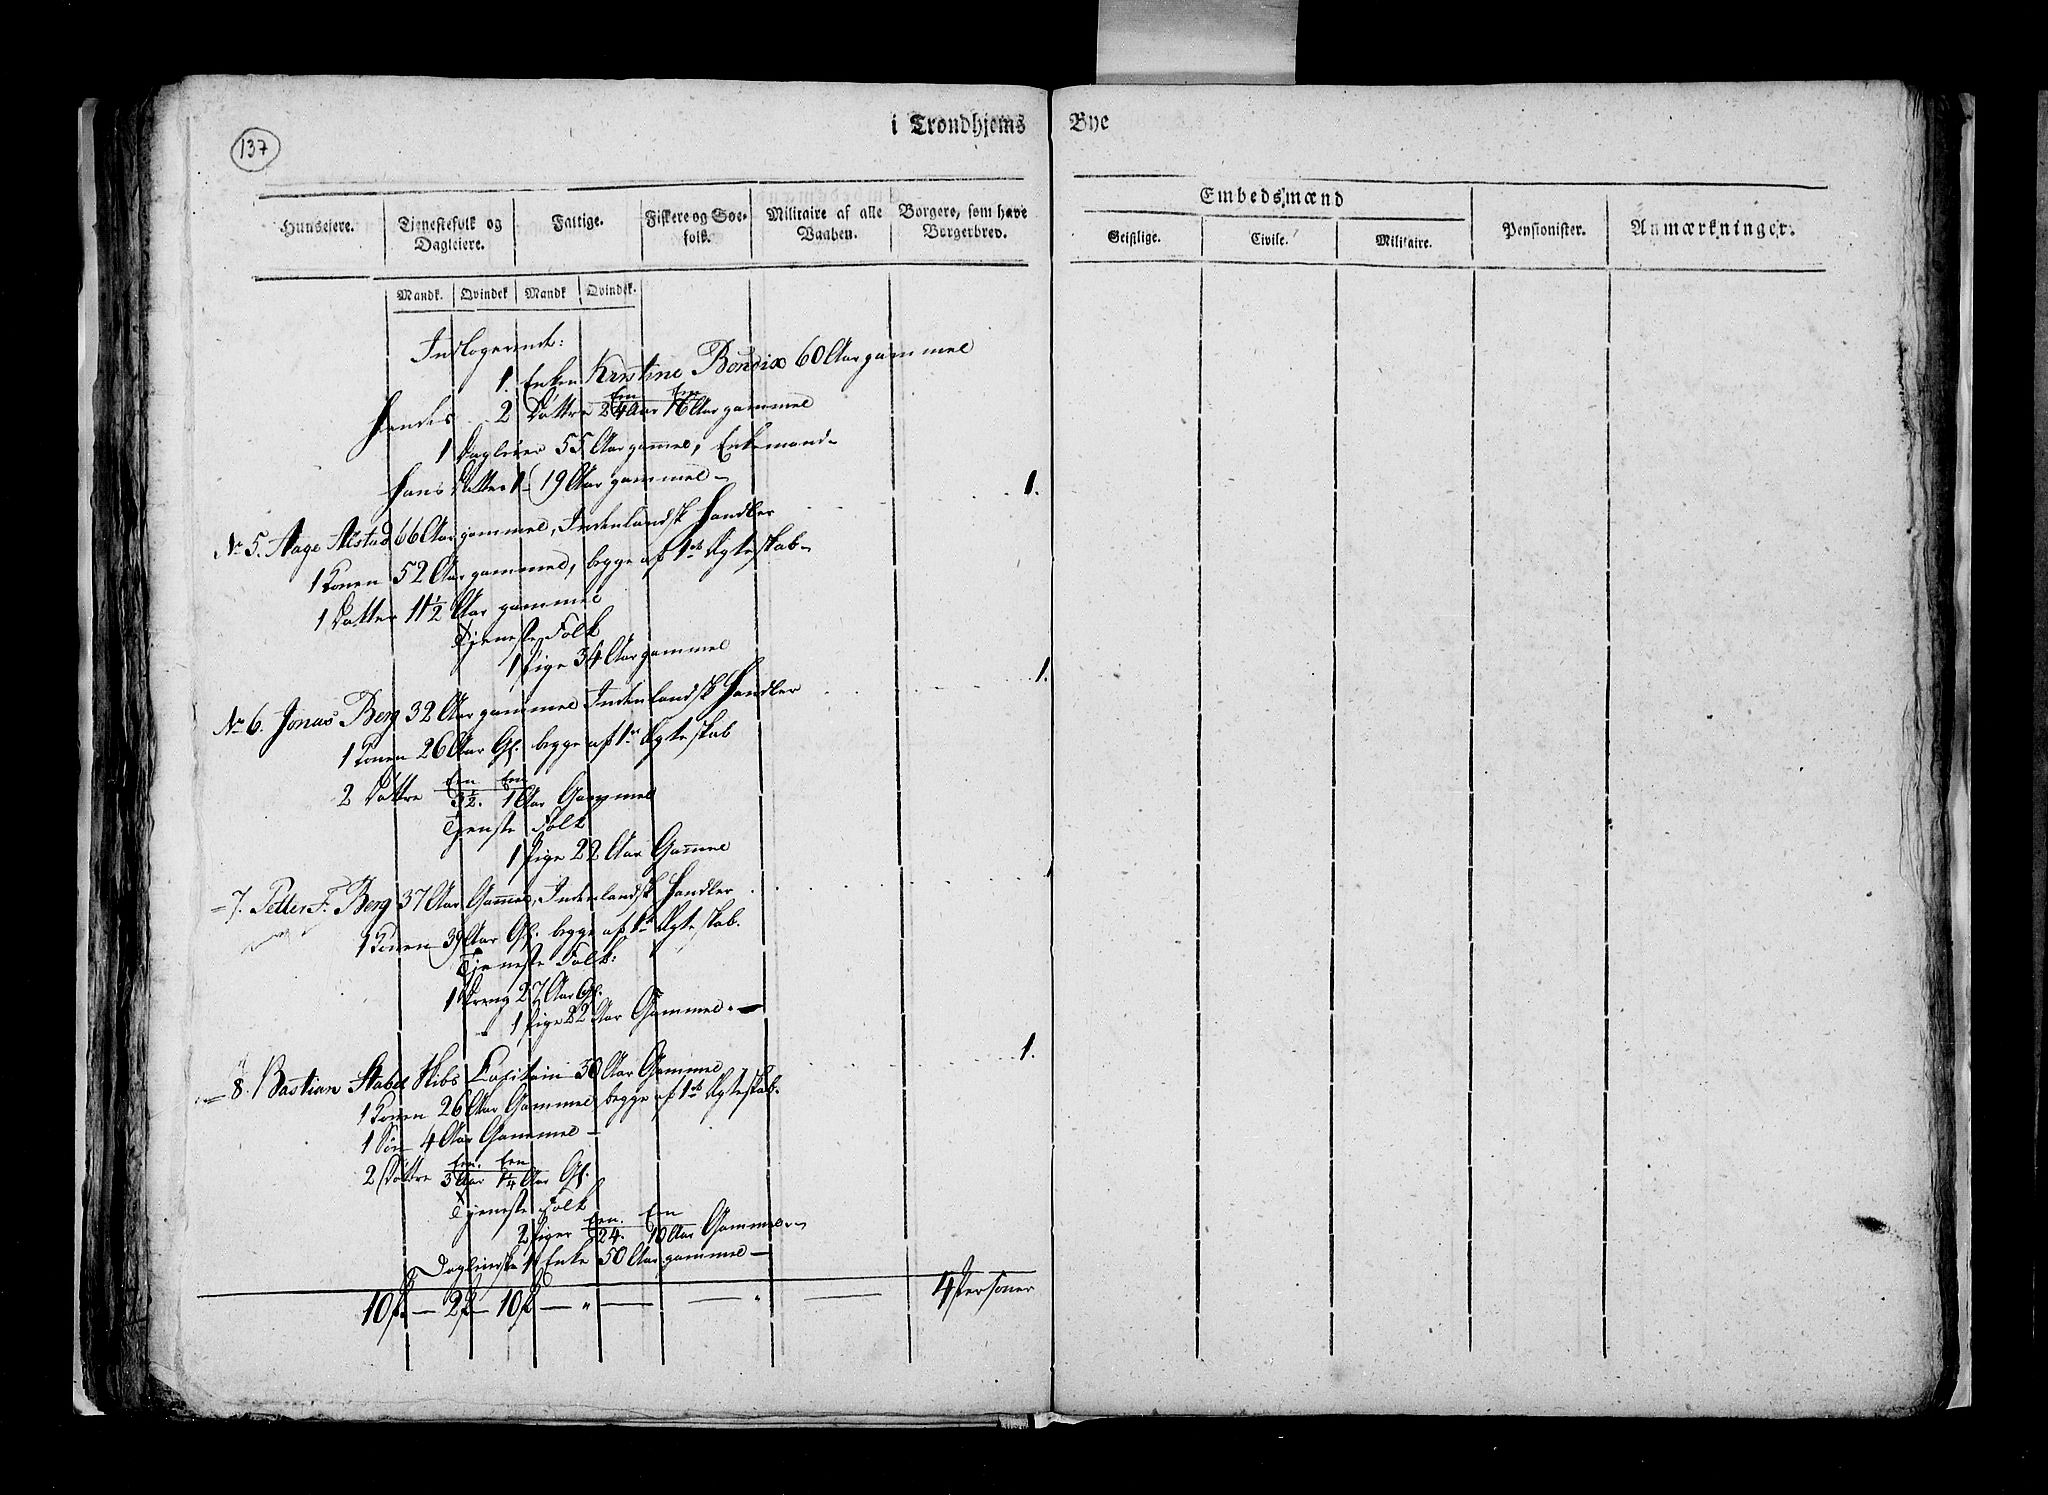 137
i Trondhjems Bye
Huuseiere.
Tjenestefolk og Dagleiere.
Fattige.
Fiskere og Søefolk.
Militaire af alle Vaaben.
Borgere, som have Borgerbrev.
Embedsmænd
Geistlige.
Civile.
Militaire.
Pensionister.
Anmærkninger.
Mandk. Qvindek Mandk Qvindek.
Indlogerende:
1. Enken Kristine Bendix 60 Aar gammel
Hendes 2 Døttre Een 24 Aar Een 16 Aar gammel
1 Dagleier 55 Aar gammel, Enkemand
Hans Datter 1 19 Aar gammel
No 5. Aage Alstad 66 Aar gammel, Indenlandsk Handler 1.
1 Konen 52 Aar gammel, begge af 1ste Ægteskab
1 Datter 11½ Aar gammel
Tjeneste Folk
1 Pige 34 Aar gammel
No 6. Jonas Berg 32 Aar gammel Indenlandsk Handler 1.
1 Konen 26 Aar Gl. begge af 1ste Ægteskab
2 Døttre Een 3½. Een 1 Aar Gammel
Tjenste Folk
1 Pige 22 Aar Gammel
= 7. Petter F. Berg 37 Aar Gammel, Indenlandsk Handler 1
1 Konen 39 Aar Gl. begge af 1ste Ægteskab.
Tjeneste Folk:
1 Dreng 27 Aar Gl.
1 Pige 22 Aar Gammel.
= 8. Bastian Stabel Skibs Capitain 30 Aar Gammel 1.
1 Konen 26 Aar Gammel begge af 1ste Ægteskab.
1 Søn 4 Aar Gammel
2 Døttre Een. 3 Aar Een 1¼ Aar Gl.
Tjeneste Folk
2 Piger Een. 24. Een 10 Aar Gammel
1 Enke 50 Aar gammel
10 P. — 2 P — 10 P — " — — " — 4 Personer